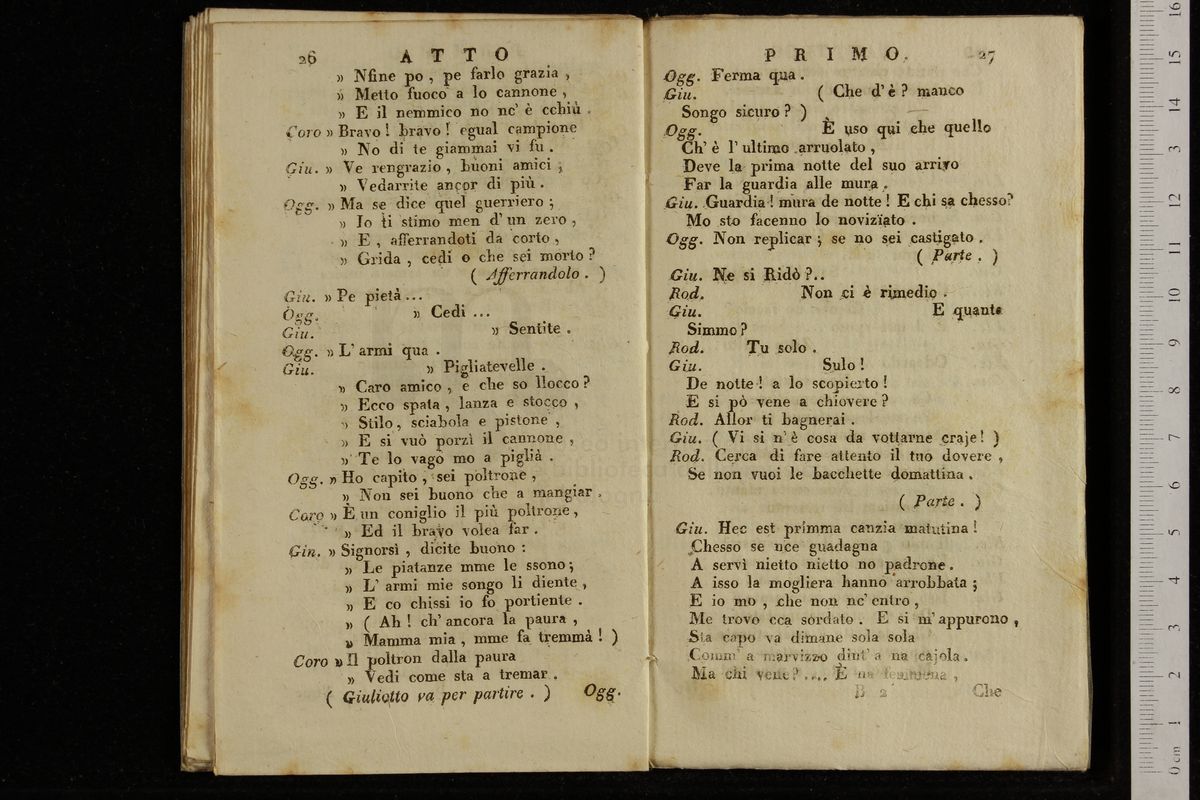 26 ATTO
» Nfine po , pe farlo grazia ,
» Metto fuoco a lo cannone ,
» E il nemmico no nc' è cchiù .
Coro » Bravo ! bravo ! egual campione
» No di te giammai vi fu .
Giu. » Ve rengrazio , buoni amici ;
» Vedarrite ancor di più .
Ogg. » Ma se dice quel guerriero ;
» Io ti stimo men d' un zero ,
» E , afferrandoti da corto ,
» Grida , cedi o che sei morto ?
( Afferrandolo . )
Giu. » Pe pietà ...
Ogg. » Cedi ...
Giu. » Sentite .
Ogg. » L' armi qua .
Giu. » Pigliatevelle .
» Caro amico , e che so llocco ?
» Ecco spata , lanza e stocco ,
» Stilo , sciabola e pistone ,
» E si vuò porzì il cannone ,
» Te lo vago mo a piglià .
Ogg. » Ho capito , sei poltrone ,
» Non sei buono che a mangiar .
Coro » È un coniglio il più poltrone ,
» Ed il bravo volea far .
Gin. » Signorsì , dicite buono :
» Le piatanze mme le ssono ;
» L' armi mie songo li diente ,
» E co chissi io fo portiente .
» ( Ah ! ch' ancora la paura ,
» Mamma mia , mme fa tremmà ! )
Coro » Il poltron dalla paura
» Vedi come sta a tremar .
( Giuliotto va per partire . ) Ogg.
PRIMO. 27
Ogg. Ferma qua .
Giu. ( Che d' è ? manco
Songo sicuro ? )
Ogg. È uso qui che quello
Ch' è l' ultimo arruolato ,
Deve la prima notte del suo arrivo
Far la guardia alle mura .
Giu. Guardia ! mura de notte ! E chi sa chesso?
Mo sto facenno lo noviziato .
Ogg. Non replicar ; se no sei castigato .
( Parte . )
Giu. Ne si Ridò ?..
Rod. Non ci è rimedio .
Giu. E quante
Simmo ?
Rod. Tu solo .
Giu. Sulo !
De notte ! a lo scopierto !
E si pò vene a chiovere ?
Rod. Allor ti bagnerai .
Giu. ( Vi si n' è cosa da vottarne craje ! )
Rod. Cerca di fare attento il tuo dovere ,
Se non vuoi le bacchette domattina .
( Parte . )
Giu. Hec est primma canzia matutina !
Chesso se nce guadagna
A servì nietto nietto no padrone .
A isso la mogliera hanno arrobbata ;
E io mo , che non nc' entro ,
Me trovo cca sordato . E si m' appurono ,
Sta capo va dimane sola sola
Comm' a marvizzo dint' a na cajola .
Ma chi vene ? .... È na femmena ,
B 2 Che
0 cm 1 2 3 4 5 6 7 8 9 10 11 12 13 14 15 16